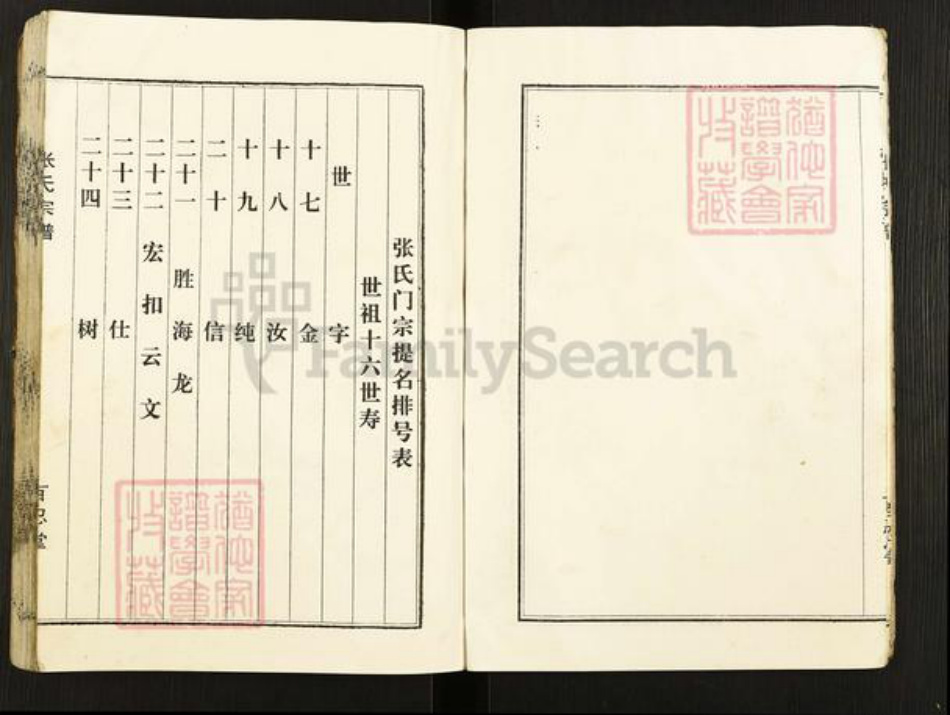 张氏门宗提名排号表
世祖十六世寿
世 字
十七 金
十八 汝
十九 纯
二十 信
二十一 胜海龙
二十二 宏扣云文
二十三 仕
二十四 树
张氏宗谱
百忍堂
猶他家
譜學會
收藏
猶他家
譜學會
收藏
FamilySearch